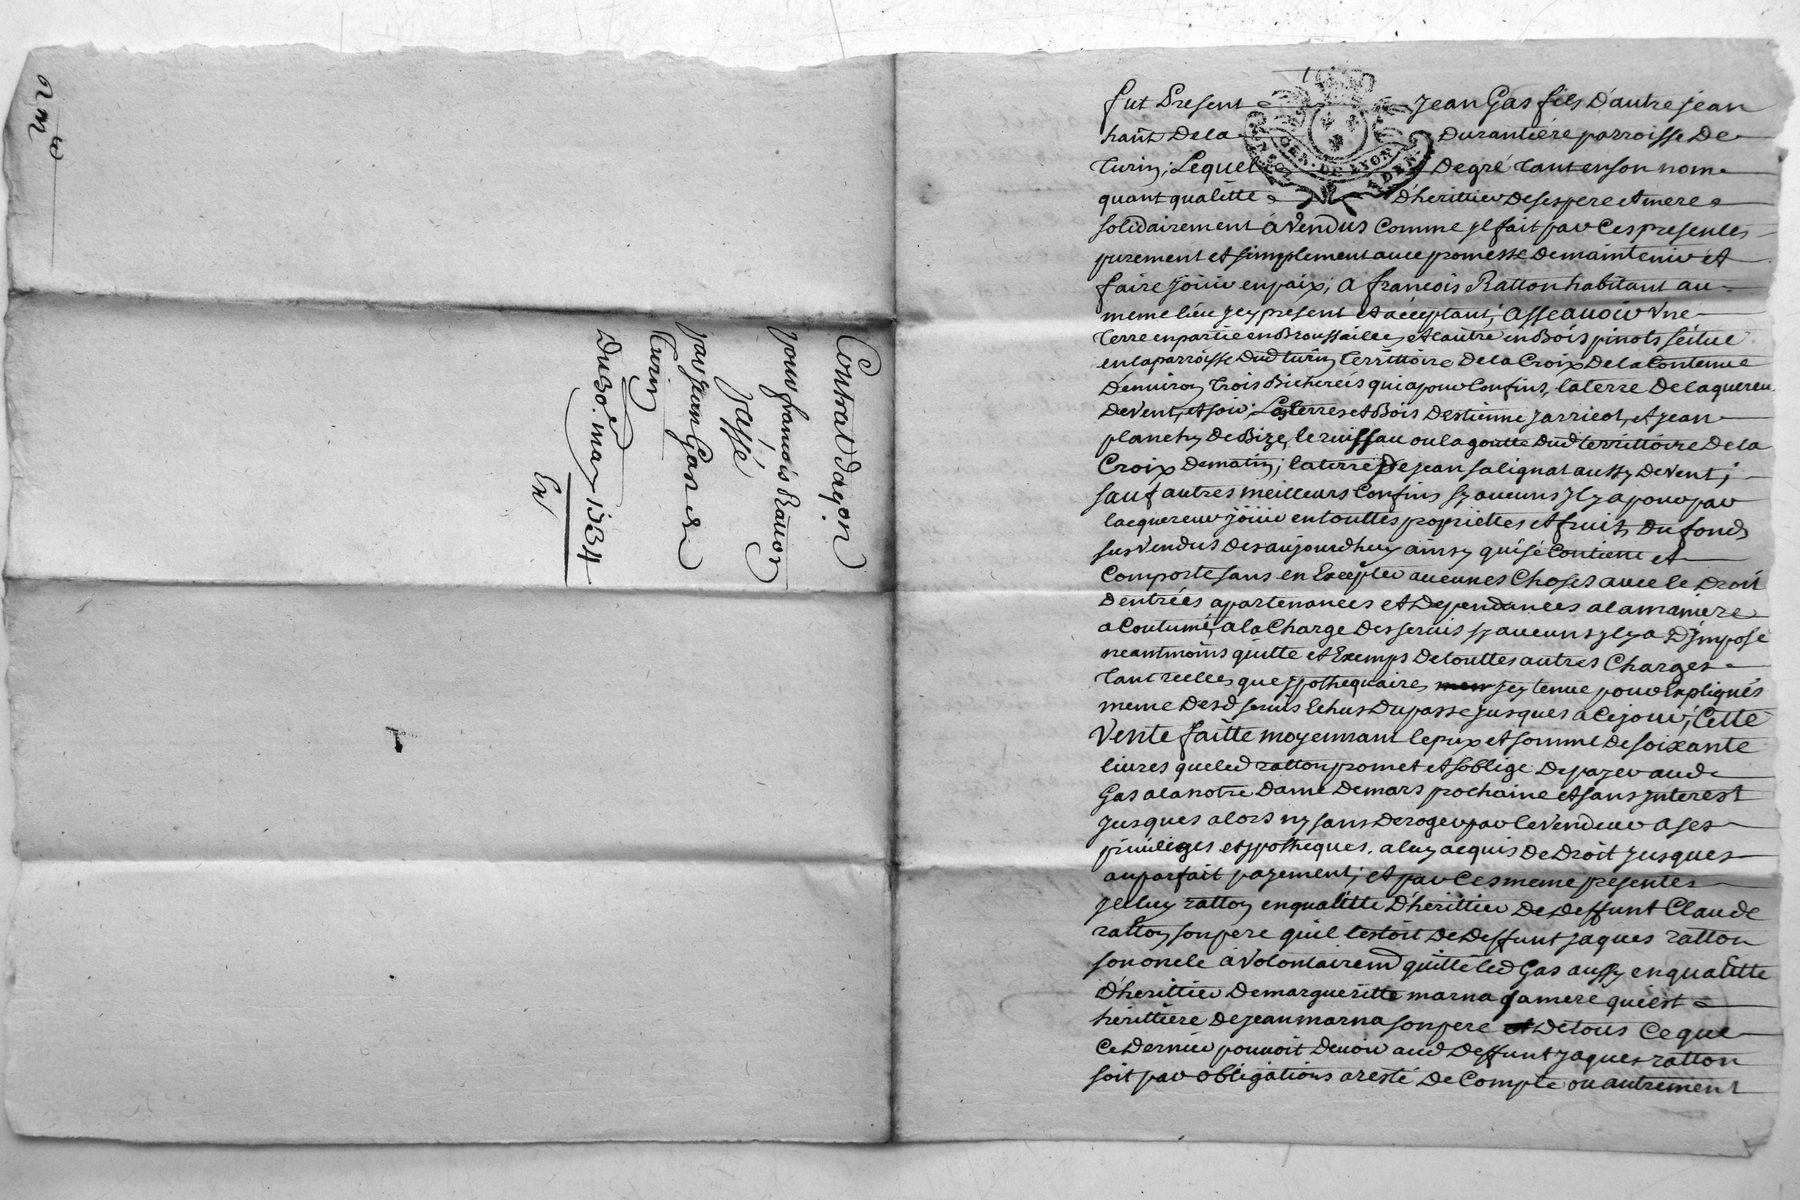 Contrat daqon
pour françois Ratton
passé
par Jean Gas de
Turin
Du 30e. may 1734
Ex
fut Present Jean Gas fils D'autre jean
hant Dela Durantiere parroisse De
Turin; Lequel Degré tant en son nom
quant qualitte D'herittier de ses pere et mere
solidairement á Vendus Comme jl fait par Ces presentes
purement et simplement avec promesse de maintenir et
faire joüir en paix; a francois Ratton habitant au
meme lieu jcy present et acceptant, Asseauoir Vne
Terre en partie en Broussailles et l'autre en Bois pinots scitué
en la parroisse Dud turin, territtoire De la Croix De la Contenue
D'enuiron trois Bicherées qui a pour Confins, la terre De laquereur
De vent, et soir, Les terres et Bois D'estienne jarricot, et jean
planchy de Bize, le ruissau ou la goutte Dud territtoire De la
Croix De matin; la terre De jean salignat aussy De vent;
sauf autres meilleurs Confins sy aucuns jl y a pour par
lacquereur joüir en touttes proprietles et fruits Du fonds
sus vendus Des aujourdhuy ainsy qu'il se Contient et
Comporte sans en Excepter aucunes Choses avec le Droit
D'entrées apartenances et Dependances a la maniere
a Coutumé, a la Charge Des seruis sy aucuns jl y a D'jmposé
neantmoins quitte et Exemps De touttes autres Charges
tant reelles que jpothequaires jcy tenue pour Expliqués
meme Desd seruis Echus Du passe jusques a Ce jour; Cette
Vente faitte moyennant le prix et somme De soixante
liures que led ratton promet et soblige De payer aud
Gas a la notre Dame De mars prochaine et sans jnterest
jusques alors ny sans Deroger par le Vendeur a ses
priuileges et jpotheques, a luy acquis De Droit jusques
au parfait payement; et par Ces meme presentes
jceluy ratton en qualitte D'herittier De Deffunt Claude
ratton son pere qu'il l'estoit De Deffunt jaques ratton
son oncle à Volontairemt quitté led Gas aussy en qualitte
D'herittier De margueritte marna sa mere qui est
herittiere De jean marna son pere De tous Ce que
Ce Dernier pouuoit Deuoir aud Deffunt jaques ratton
soit par obligations aresté De Compte ou autrement